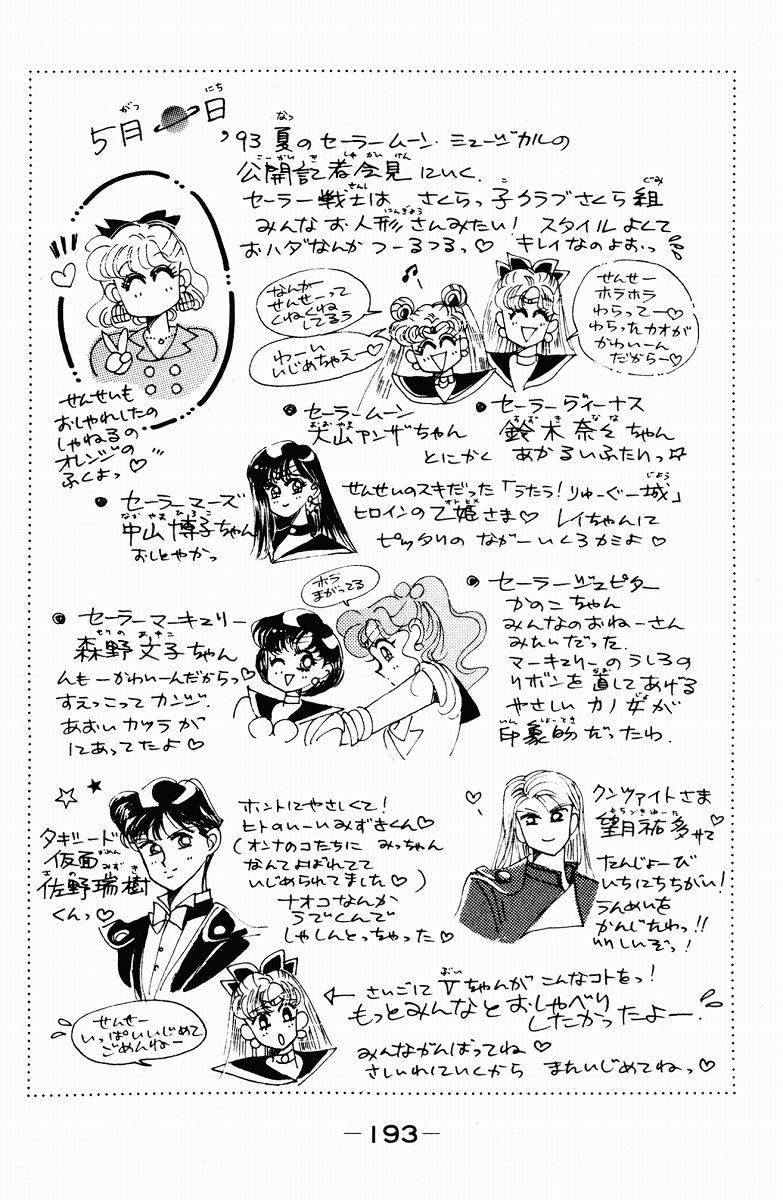 5月🪐日
'93 夏のセーラームーン・ミュージカルの
公開記者会見にいく.
セーラー戦士は さくらっ子クラブさくら組
みんなお人形さんみたい! スタイルよくて
おハダなんかつーるつるっ♡ キレイなのよおっ
せんせいも
おしゃれしたの
しゃねるの
オレンジの
ふくよっ♡
なんか
せんせーって
くねくね
してるぅ
わーい
いじめちゃえー♡
せんせー
ホラホラ
わらってー♡
わらったカオが
かわいーん
だから〜♡
セーラームーン
大山アンザちゃん
セーラーヴィーナス
鈴木奈々ちゃん
とにかく あかるいふたりっ☆
セーラーマーズ
中山博子ちゃん
おしとやかっ
せんせいのスキだった「うたう!りゅーぐー城」
ヒロインの乙姫さま♡ レイちゃんに
ピッタリの ながーいくろカミよ♡
セーラーマーキュリー
森野文子ちゃん
んもーかわいーんだからっ♡
すえっこってカンジ.
あおいカツラが
にあってたよ♡
ホラ
まがってる
セーラージュピター
かのこちゃん
みんなのおねーさん
みたいだった.
マーキュリーのうしろの
リボンを直してあげる
やさしいカノ女が
印象的だったわ.
タキシード
仮面
佐野瑞樹
くんっ♡
ホントにやさしくて!
ヒトのいーいみずきくん♡
(オンナのコたちに みっちゃん
なんてよばれてて
いじめられてました♡)
ナオコなんか
うでくんで
しゃしんとっちゃった♡
クンツァイトさま
望月祐多サマ
たんじょーび
いちにちちがい!
うんめいを
かんじたわっ!!
りりしいぞっ!
せんせー
いっぱいいじめて
ごめんねー
← さいごにVちゃんが こんなコトをっ!
もっとみんなとおしゃべり
したかったよー.
みんながんばってね♡
さしいれにいくから またいじめてねっ♡
—193—